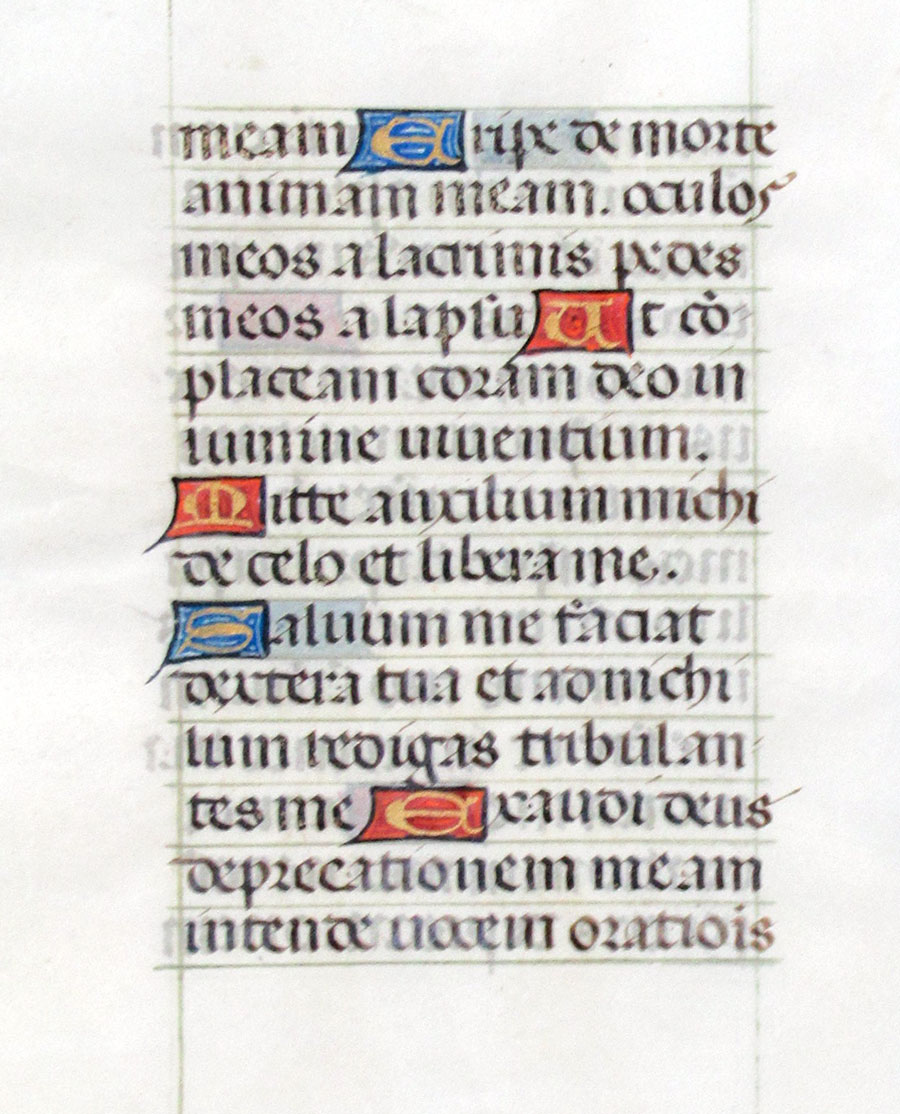 meam Eripe de morte
animam meam. oculos
meos a lacrimis pedes
meos a lapsu Ut cō
placeam coram deo in
lumine viventium.
Mitte auxilium michi
de celo et libera me.
Salvum me faciat
dextera tua et ad nichi
lum redigas tribulan
tes me Exaudi deus
deprecationem meam
intende vocem oratiois